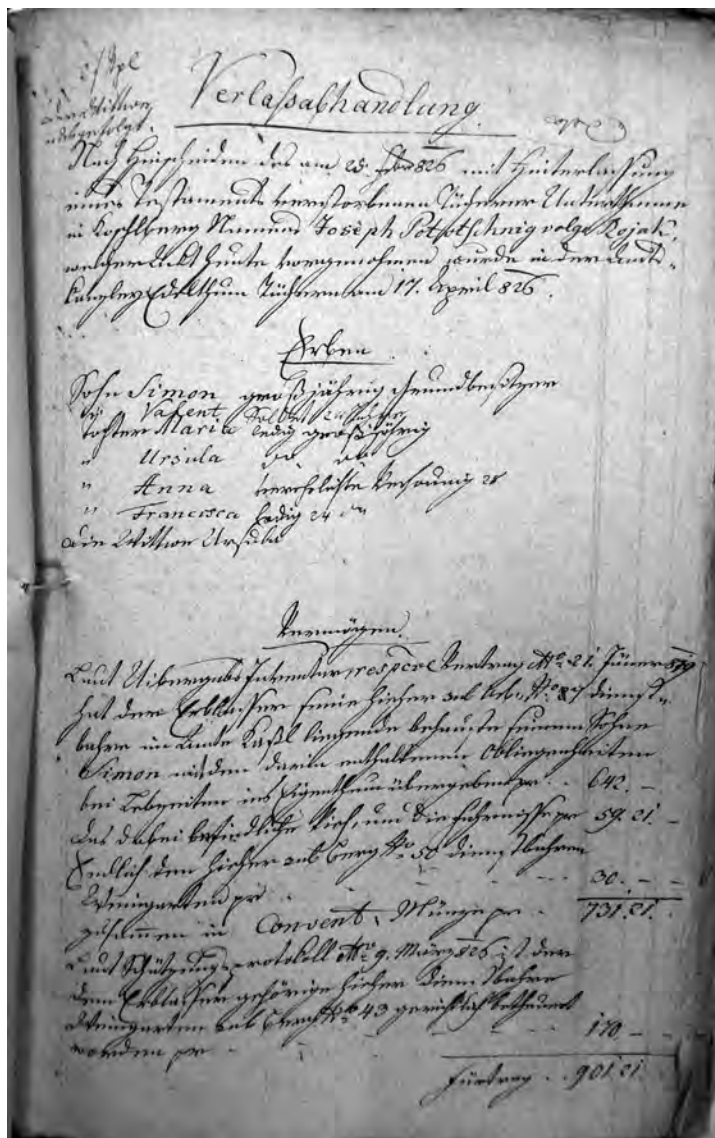 Verlaßabhandlung.
Nach Hinscheiden des am 25. 826 mit Hinterlassung
eines Testaments verstorbenen Tücherer Unterthanne
in Koschlberg Namens Joseph Potptschnig vulgo Rojak,
welcher Akt heute vorgenohmen wurde in der Amts-
kanzley Edelthum Tüchern am 17. April 826.
Erben
Sohn Simon großjährig Grundbesitzer
" Valent
Tochter Maria ledig großjährig
" Ursula do do
" Anna verehelichte
" Francisca ledig 24
die Wittwe Ursula
Vermögen.
Laut Uibergabs Inventar, respëve Vertrag 21. Jäner 819
hat der Erblasser seine hieher sub Urb. No 87 dienst-
bahre im Amte liegende behauste seinem Sohne
Simon mit den darin enthaltenen Obliegenheiten
bei Lebzeiten ins Eigenthum übergeben pr. 642. –
Das dabei befindliche Vieh, und die Fahrnisse pr 59. 21. –
Endlich den hieher sub Berg No 50 dienstbahren
Weingarten pr 30. – –
zusammen in Convent. Münze pr. 731. 21. –
Laut Schätzungsprotokoll 9. März 826 ist der
dem Erblasser gehörige hieher dienstbahre
Weingarten sub Berg No 43 gerichtlich betheuert
worden pr 170. – –
Fürtrag 901. 21.